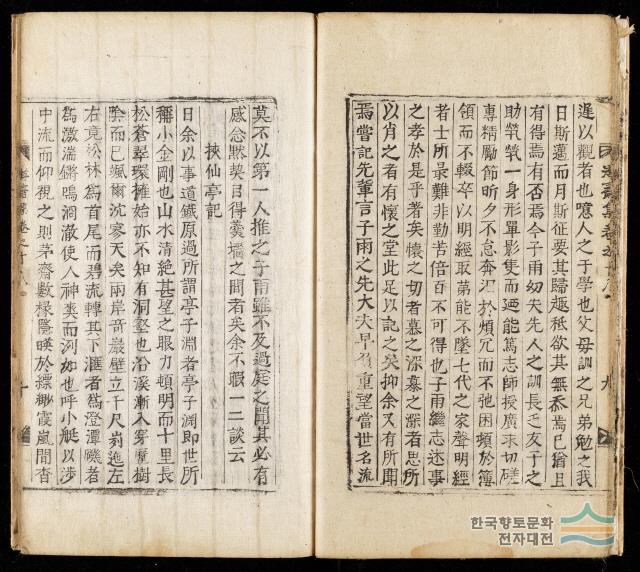 遅以觀者也噫人之于學也父母訓之兄弟勉之我
日斯邁而月斯征要其歸趣秪欲其無忝焉已猶且
有得焉有否焉今子雨幼失先人之訓長乏友于之
助煢煢一身形單影隻而廼能篤志師授廣求切磋
專精勵節昕夕不怠奔汨於煩冗而不弛困頓於簿
領而不輟卒以明經取第能不墜七代之家聲明經
者士所最難非勤苦倍百不可得也子雨繼志述事
之孝於是乎著矣懷之切者慕之深慕之深者思所
以肖之者有懷之堂此足以記之矣抑余又有所聞
焉嘗記先輩言子雨之先大夫早負重望當世名流
莫不以第一人推之子雨雖不及過庭之聞其必有
感念黙契目得羹墻之間者矣余不暇一二談云
挾仙亭記
日余以事道鐵原過所謂亭子淵者亭子淵即世所
稱小金剛也山水清絶甚望之眼力頓明而十里長
松蒼翠環擁始亦不知有洞壑也沿溪漸入穿羣樹
陰而已颯爾沈寥天矣兩岸奇巖壁立千尺峛迤左
右竟松林爲首尾而碧流轉其下滙者爲澄潭磯者
爲激湍鏘鳴洞澈使人神爽而洌如也呼小艇以涉
中流而仰視之則茅齋數椽隱暎於縹緲霞嵐間杳
한국향토문화
전자대전